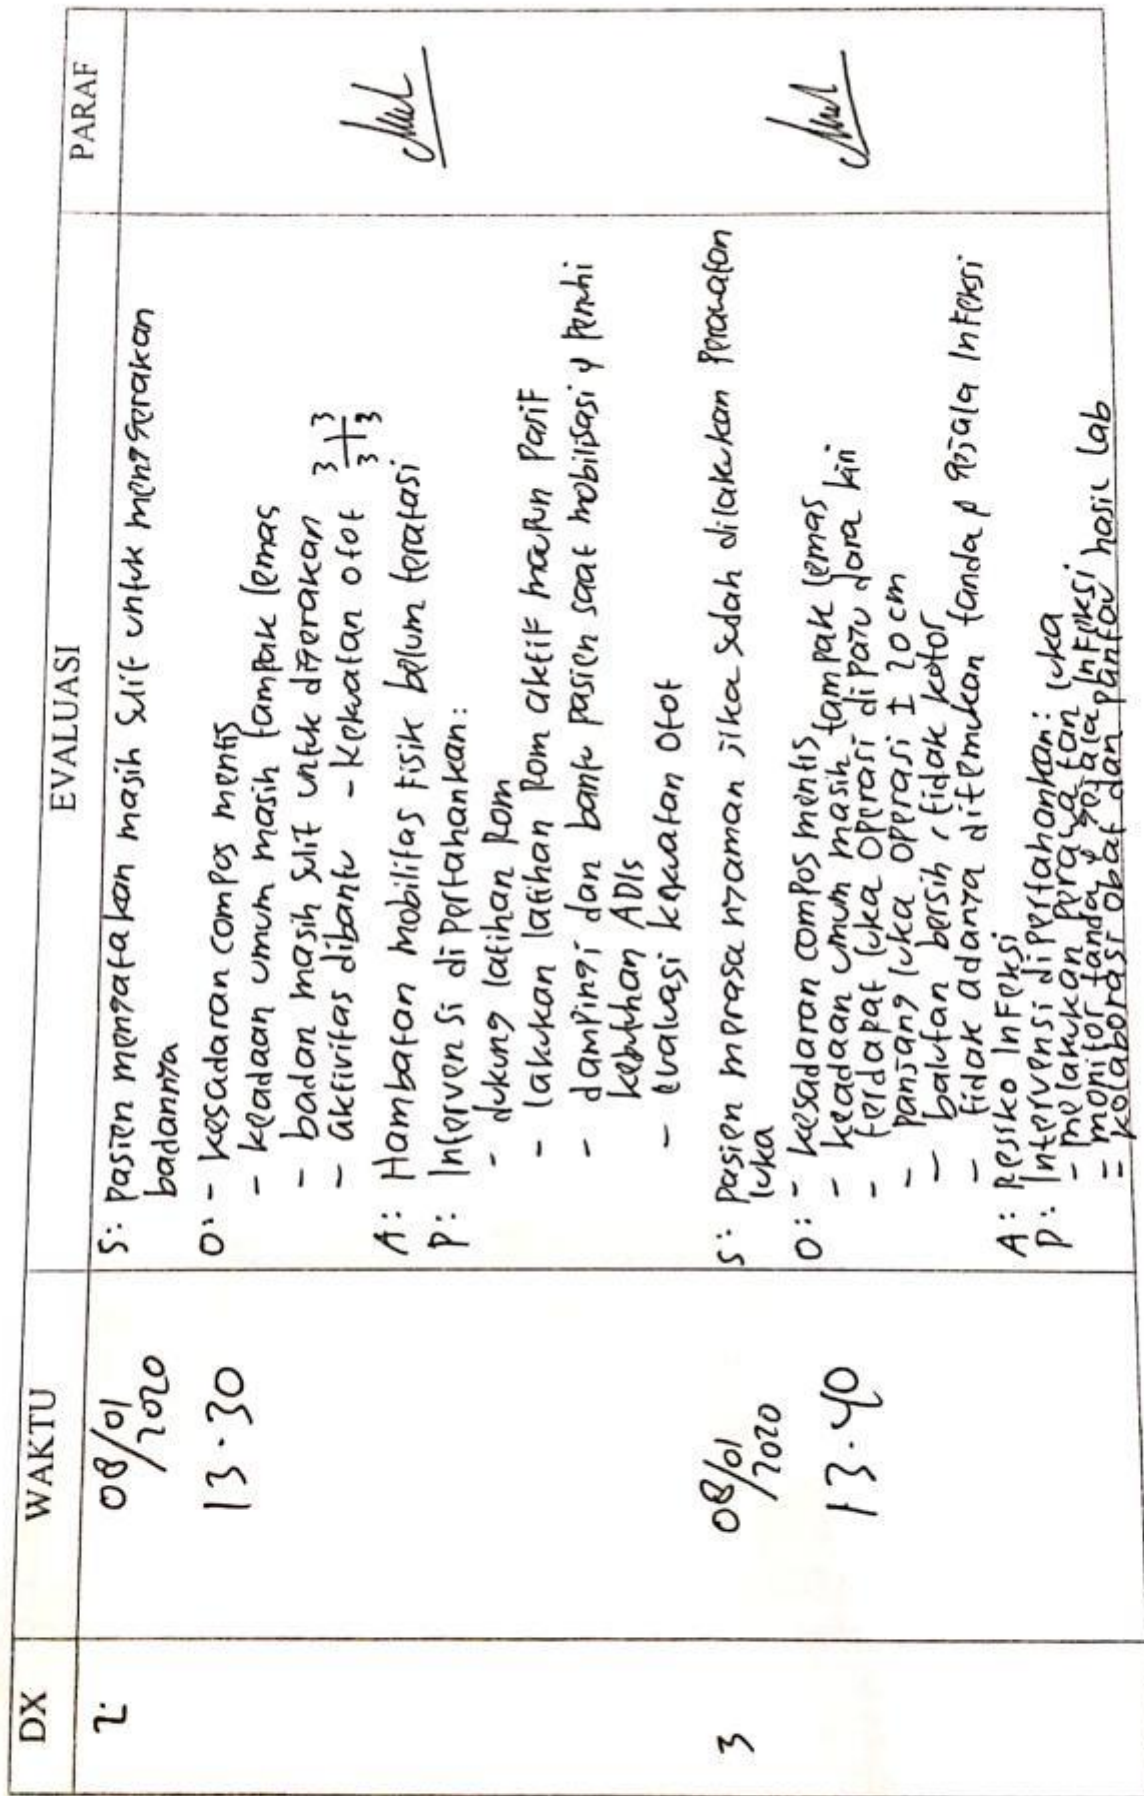 DX WAKTU EVALUASI PARAF
2. 08/01/2020 13.30
S: pasien mengatakan masih sulit untuk menggerakan
badannya
O: - kesadaran compos mentis
- keadaan umum masih tampak lemas
- badan masih sulit untuk digerakan
- aktivitas dibantu - kekuatan otot 3 3
3 3
A: Hambatan mobilitas fisik belum teratasi
P: Intervensi dipertahankan:
- dukung latihan Rom
- lakukan latihan Rom aktif maupun pasif
- dampingi dan bantu pasien saat mobilisasi & penuhi
kebutuhan ADIs
- evaluasi kekuatan otot
3 08/01/2020 13.40
S: pasien merasa nyaman jika sudah dilakukan perawatan
luka
O: - kesadaran compos mentis
- keadaan umum masih tampak lemas
- terdapat luka operasi dipayu dara kiri
- panjang luka operasi ± 20 cm
- balutan bersih, tidak kotor
- tidak adanya ditemukan tanda & gejala infeksi
A: Resiko Infeksi
P: Intervensi dipertahankan:
- melakukan perawatan luka
- monitor tanda & gejala infeksi
- kolaborasi obat dan pantau hasil lab